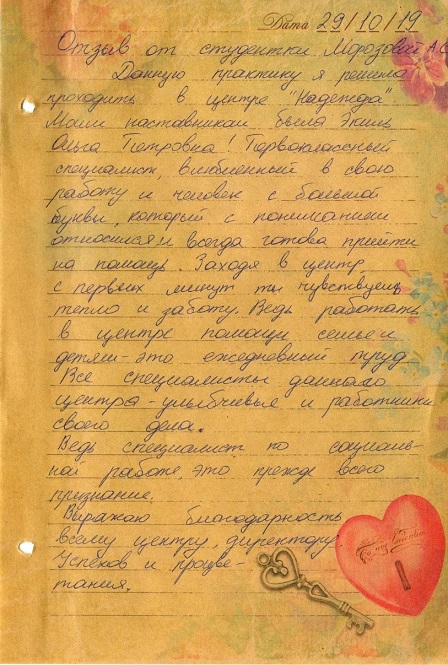 Дата 29/10/19
Отзыв от студентки Морозовой А.С
Данную практику я решила
проходить в центре "Надежда"
Моим наставником была Экиль
Ольга Петровна! Первоклассный
специалист, влюбленный в свою
работу и человек с большой
буквы, который с пониманием
относился и всегда готова прийти
на помощь. Заходя в центр
с первых минут ты чувствуешь
тепло и заботу. Ведь работать
в центре помощи семье и
детям - это ежедневный труд
Все специалисты данного
центра - улыбчивые и работники
своего дела.
Ведь специалист по социаль-
ной работе, это прежде всего
признание.
Выражаю благодарность
всему центру, директору.
Успехов и процве-
тания.